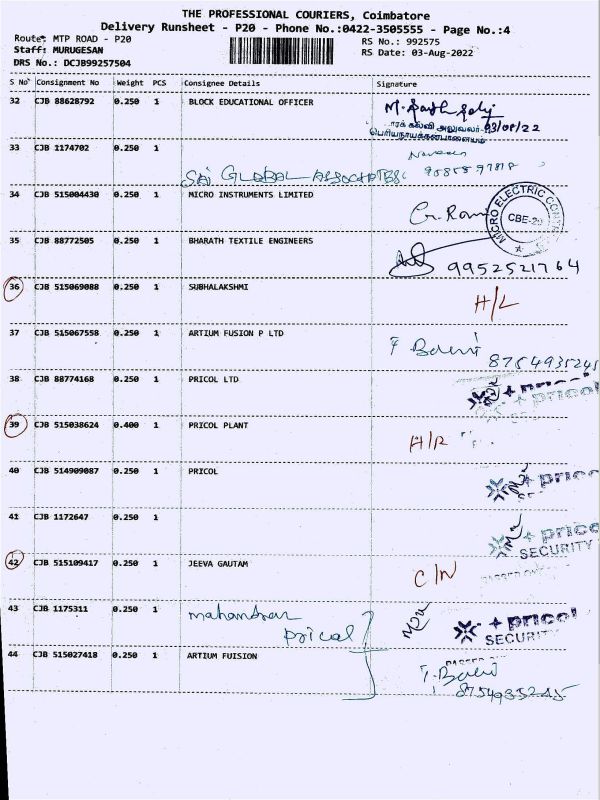 THE PROFESSIONAL COURIERS, Coimbatore
Delivery Runsheet - P20 - Phone No.:0422-3505555 - Page No.:4
Route: MTP ROAD - P20
RS No.: 992575
Staff: MURUGESAN
RS Date: 03-Aug-2022
DRS No.: DCJB99257504
S No Consignment No Weight PCS Consignee Details Signature
32 CJB 88628792 0.250 1 BLOCK EDUCATIONAL OFFICER
அலுவலர் 03/08/22
33 CJB 1174702 0.250 1
SAI GLOBAL ASSOCIATES
34 CJB 515004430 0.250 1 MICRO INSTRUMENTS LIMITED
G. Rani MICRO ELECTRIC CBE-29
35 CJB 88772505 0.250 1 BHARATH TEXTILE ENGINEERS
9952521764
36 CJB 515069088 0.250 1 SUBHALAKSHMI
H/L
37 CJB 515067558 0.250 1 ARTIUM FUSION P LTD
8754935245
38 CJB 88774168 0.250 1 PRICOL LTD
+ pricol
39 CJB 515038624 0.400 1 PRICOL PLANT
A/R
40 CJB 514909087 0.250 1 PRICOL
+ pric
41 CJB 1172647 0.250 1
+ price
SECURITY
42 CJB 515109417 0.250 1 JEEVA GAUTAM
C/N
43 CJB 1175311 0.250 1
pricol
+ pricol
SECURITY
44 CJB 515027418 0.250 1 ARTIUM FUISION
8754935245